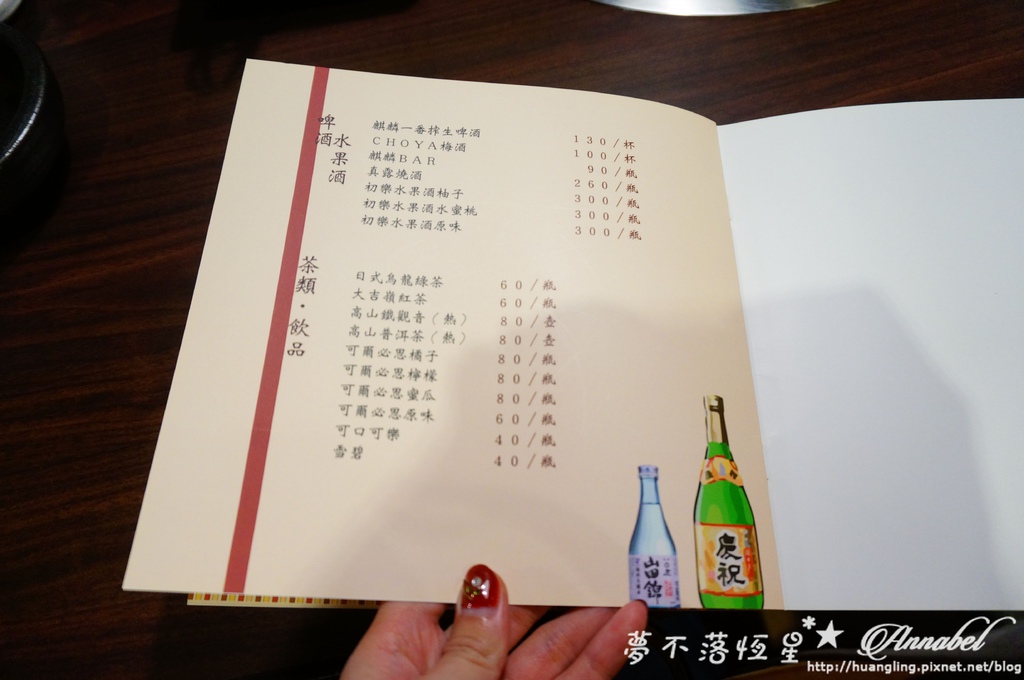 啤酒
水果酒
麒麟一番搾生啤酒 130/杯
CHOYA梅酒 100/杯
麒麟BAR 90/瓶
真露燒酒 260/瓶
初樂水果酒柚子 300/瓶
初樂水果酒水蜜桃 300/瓶
初樂水果酒原味 300/瓶
茶類・飲品
日式烏龍綠茶 60/瓶
大吉嶺紅茶 60/瓶
高山鐵觀音(熱) 80/壺
高山普洱茶(熱) 80/壺
可爾必思橘子 80/瓶
可爾必思檸檬 80/瓶
可爾必思蜜瓜 80/瓶
可爾必思原味 60/瓶
可口可樂 40/瓶
雪碧 40/瓶
山田錦
慶祝
夢不落恆星*★ Annabel
http://huangling.pixnet.net/blog